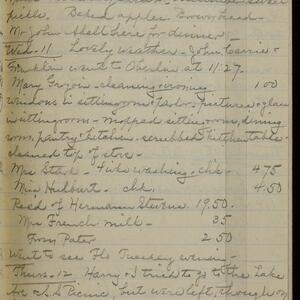 pickle. Baked apples. Brown bread.
Mr John Mell here for dinner—
Wed. 11 Lovely weather. John, Carrie &
Franklin went to Oberlin at 11:27.
Mary Grozin cleaning & ironing 1 00
windows in sitting room & parlor, pictures & glass
in sitting room— mopped sitting room, dining
room, pantry & kitchen. scrubbed kitchen table.
cleaned top of stove—
Mrs Stark— 4 wks washing. chk— 4 75
Miss Hulburt— chk. 4.50
Recd of Hermann Stevens 19.50.
Mrs French milk— 35
From Pater 2 50
Went to see Flo Tuesday evenin—
Thurs. 12 Harry & I tried to go to the Lake
for S.S. Picnic, but were left, though